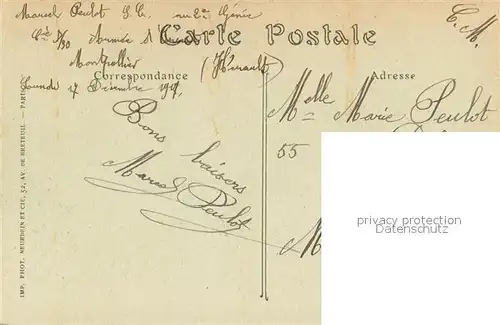 Marcel Peulot S. C. au 2e Génie
Cie 5/30 Armée
Carte Postale
C. M.
Montpellier (Hérault)
Correspondance
Adresse
17 Décembre 191
Melle Marie Peulot
55
Bons baisers
Marcel Peulot
M
privacy protection
Datenschutz
IMP. PHOT. NEURDEIN ET CIE, 52, AV. DE BRETEUIL. — PARIS